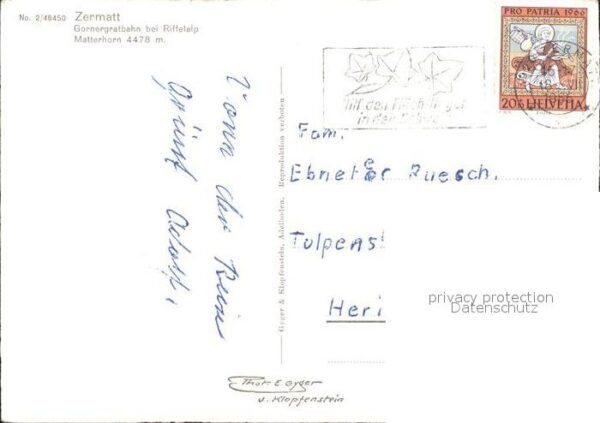 No. 2/48450 Zermatt
Gornergratbahn bei Riffelalp
Matterhorn 4478 m.
PRO PATRIA 1966
20 HELVETIA
Hilf den Flüchtlingen
Fam.
Ebneter Ruesch.
Tulpens
Heri
Vonn der Reise
grüsst Adolf.
Gyger & Klopfenstein, Adelboden. Reproduktion verboten
Phot. E. Gyger
u. Klopfenstein
privacy protection
Datenschutz